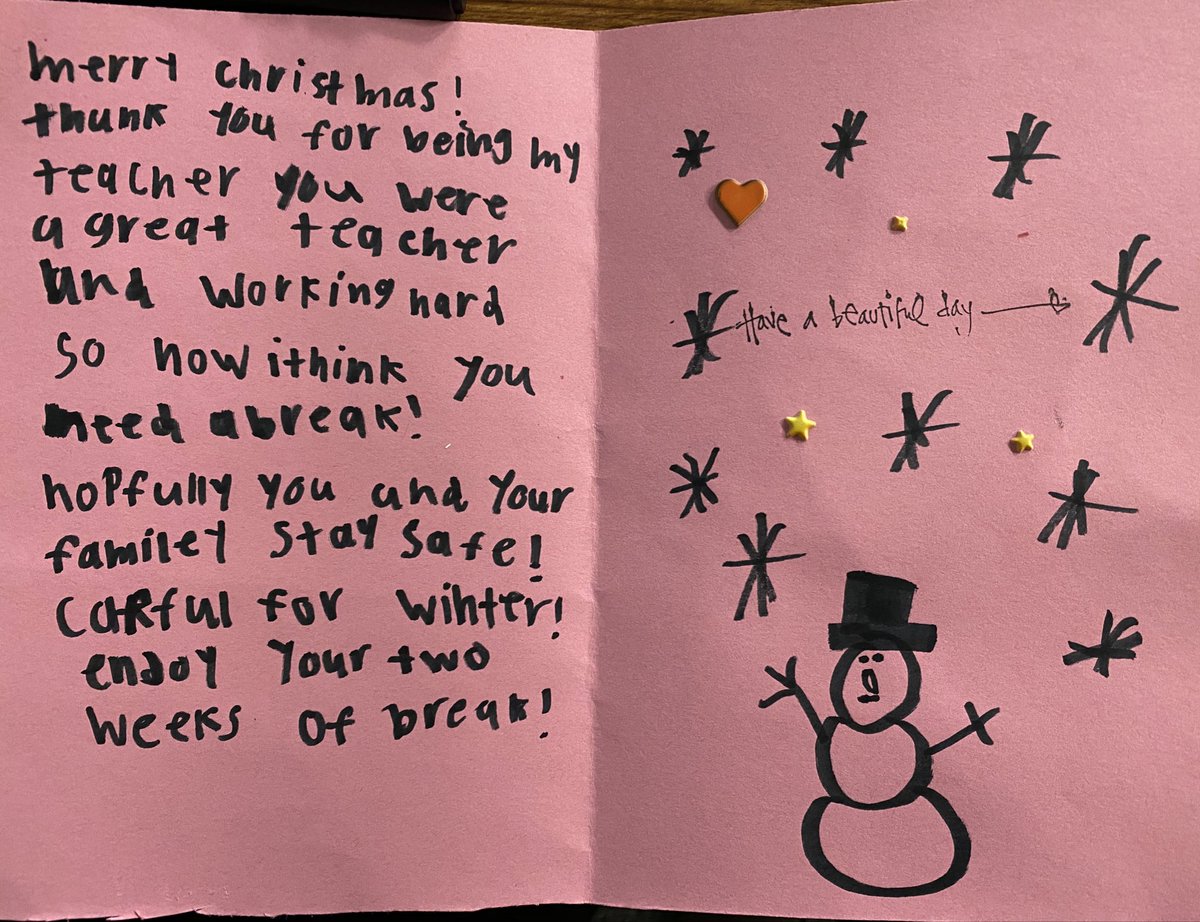 merry christmas!
thunk you for being my
teacher you were
a great teacher
and working hard
so now ithink you
need abreak!
hopfully you and your
familey stay safe!
Carful for winter!
enjoy your two
weeks of break!
Have a beautiful day